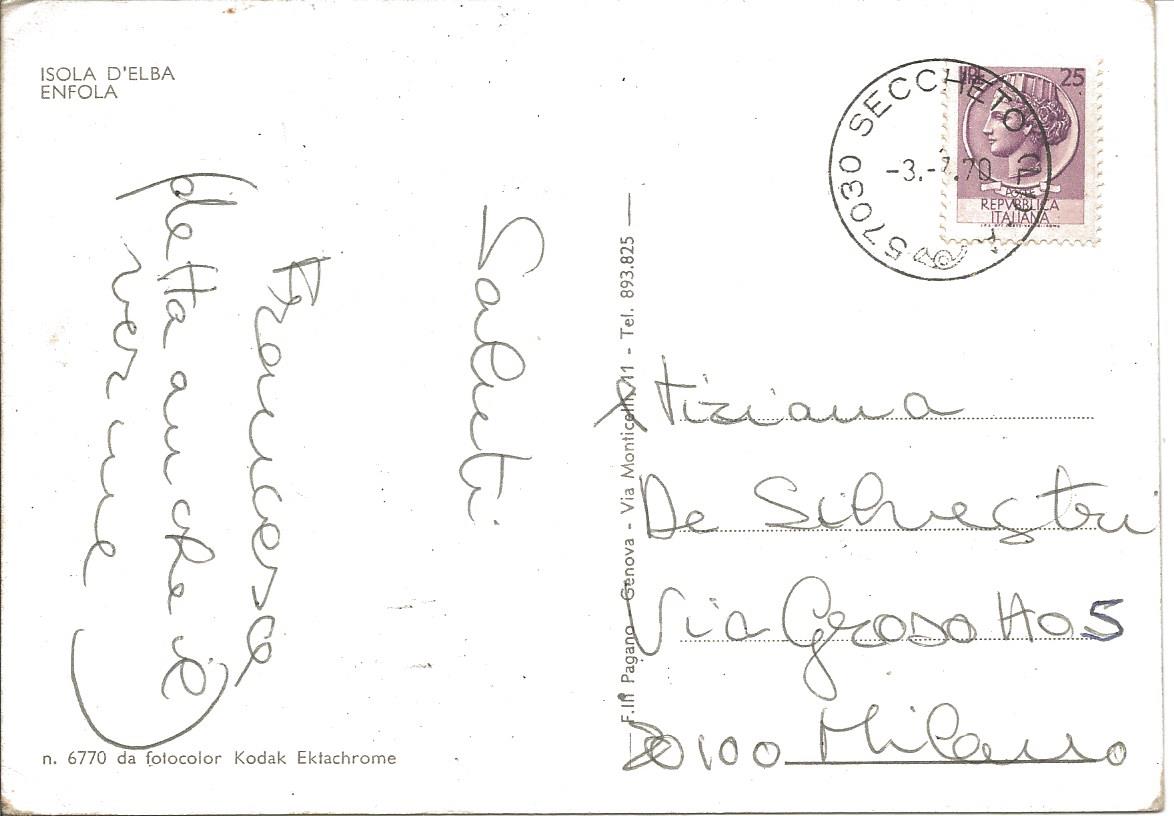 ISOLA D'ELBA
ENFOLA
Saluti
Francesca
(detta anche il
ver me)
n. 6770 da fotocolor Kodak Ektachrome
F.lli Pagano - Genova - Via Monticelli, 11 - Tel. 893.825
57030 SECCHETO
-3.-7.70
LIRE 25
POSTE
REPVBBLICA
ITALIANA
Tiziana
De Silvestri
Via Grosotto 5
20100 Milano